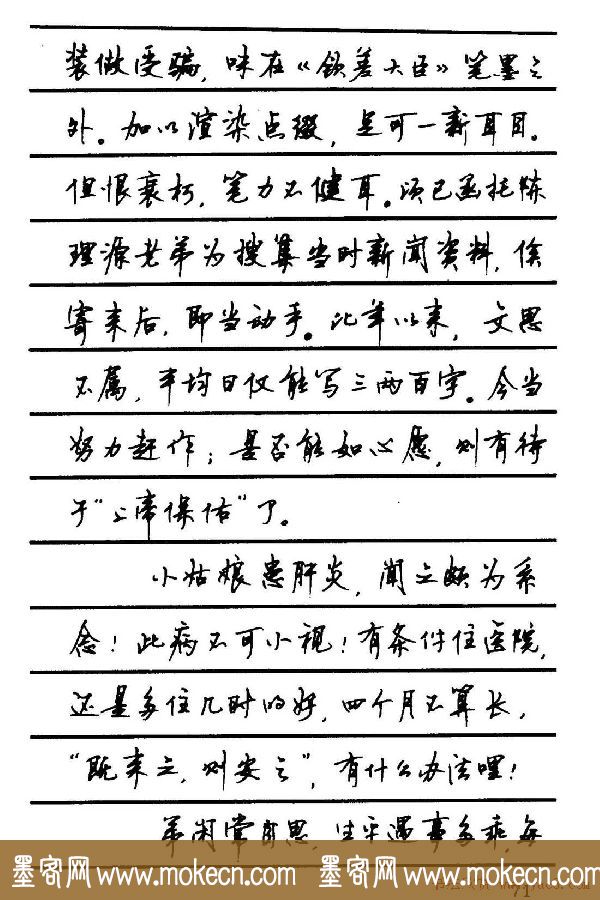 装做受骗，味在《钦差大臣》笔墨之
外。加以渲染点缀，是可一新耳目。
但恨衰朽，笔力不健耳。须已函托陈
理源老弟为搜集当时新闻资料，俟
寄来后，即当动手。比年以来，文思
不属，平均日仅能写三两百字。今当
努力赶作；是否能如心愿，则有待
于“上帝保佑”了。
小姑娘患肝炎，闻之颇为系
念！此病不可小视！有条件住医院，
还是多住几时的好，四个月不算长，
“既来之，则安之”，有什么办法哩！
弟闲常自思，生平遇事多乖，每
墨客网 www.mokecn.com 墨客网 www.mokecn.com